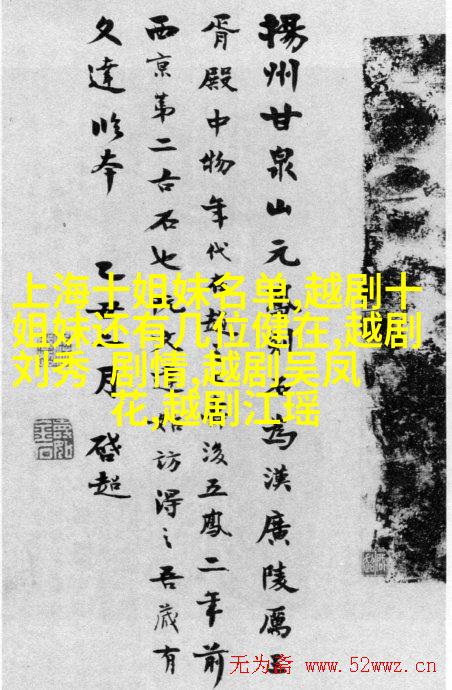 上海十姐妹名单,越剧十
姐妹还有几位健在,越剧
刘秀 剧情,越剧吴凤
花,越剧江瑶
揚州甘泉山元石為漢廣陵厲王
胥殿中物年代在後五鳳二年前
西京第二古石也訪得之吾藏有
文達本 月 啓超
无为斋 www.52wwz.cn